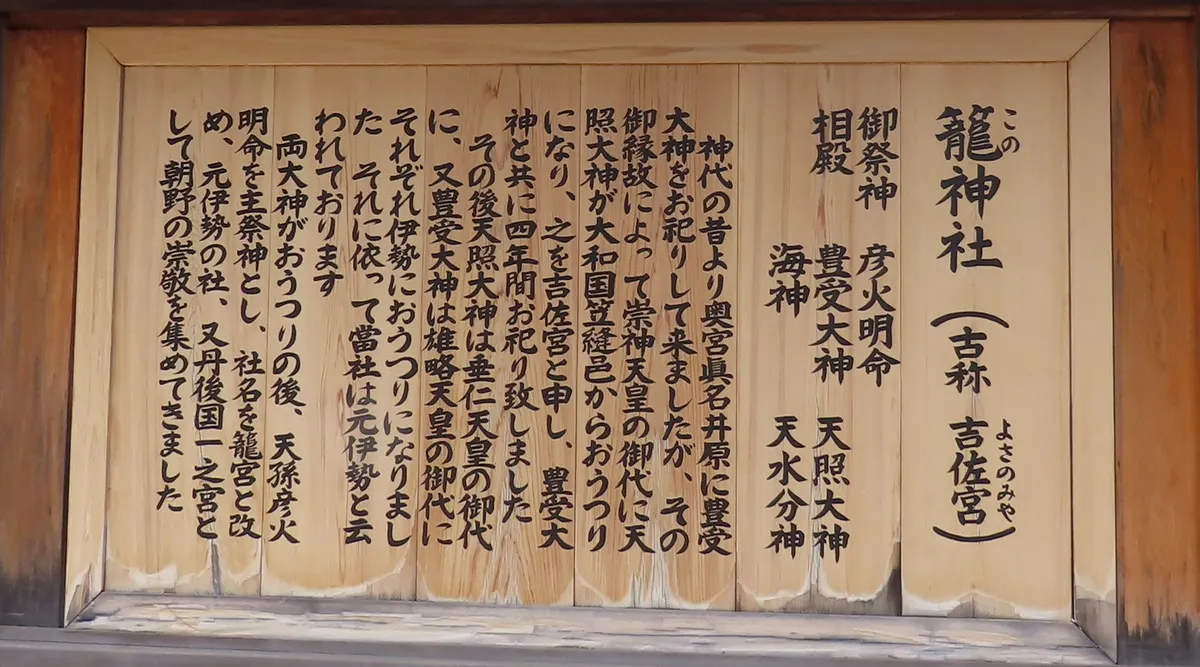 籠神社（古称 吉佐宮）
この
よさのみや
御祭神 彦火明命
相殿 豊受大神 天照大神
海神 天水分神
神代の昔より奥宮眞名井原に豊受
大神をお祀りして来ましたが、その
御縁故によって崇神天皇の御代に天
照大神が大和国笠縫邑からおうつり
になり、之を吉佐宮と申し、豊受大
神と共に四年間お祀り致しました
その後天照大神は垂仁天皇の御代
に、又豊受大神は雄略天皇の御代に
それぞれ伊勢におうつりになりまし
た それに依って當社は元伊勢と云
われております
両大神がおうつりの後、天孫彦火
明命を主祭神とし、社名を籠宮と改
め、元伊勢の社、又丹後国一之宮と
して朝野の崇敬を集めてきました